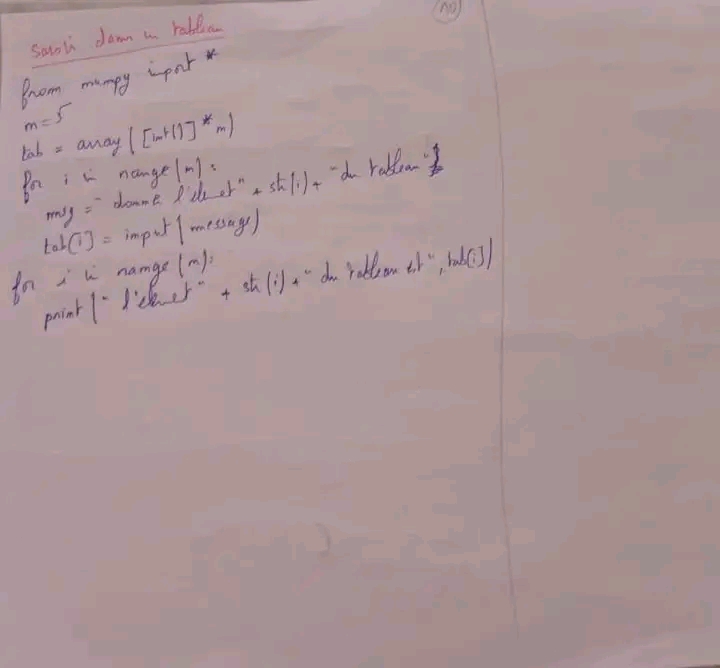 10
Saisir dans un tableau
from numpy import *
n=5
tab = array([int()]*n)
for i in range(n):
msg = "donné l'élmet" + str(i) + "du tableau"
tab[i] = input(message)
for i in range(n):
print("l'élmet" + str(i) + "du tableau est", tab[i])